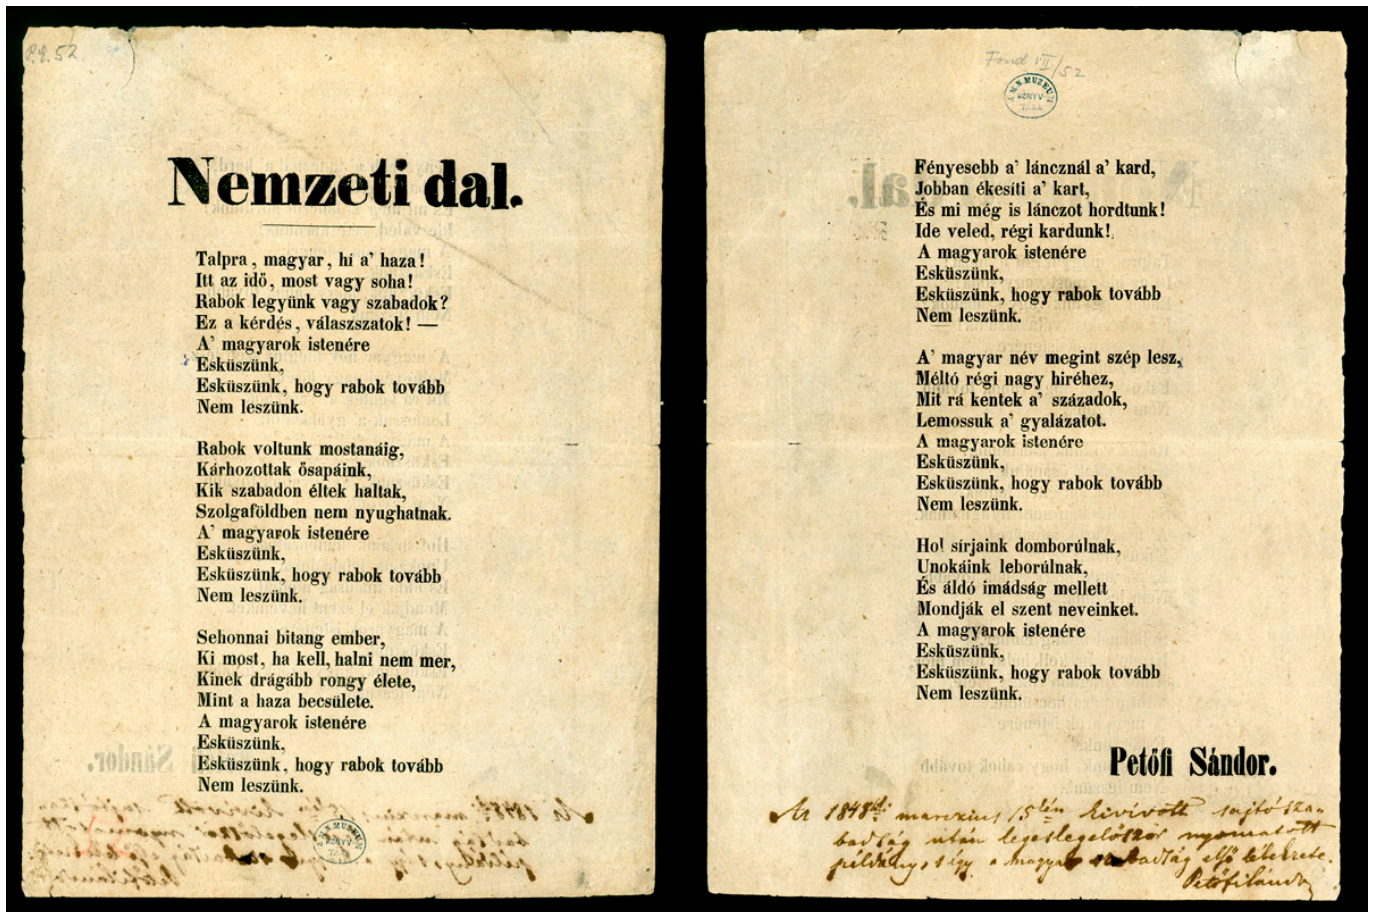 P.g. 52
Nemzeti dal.
Talpra, magyar, hí a’ haza!
Itt az idő, most vagy soha!
Rabok legyünk vagy szabadok?
Ez a kérdés, válaszszatok! —
A’ magyarok istenére
Esküszünk,
Esküszünk, hogy rabok tovább
Nem leszünk.
Rabok voltunk mostanáig,
Kárhozottak ősapáink,
Kik szabadon éltek haltak,
Szolgaföldben nem nyughatnak.
A’ magyarok istenére
Esküszünk,
Esküszünk, hogy rabok tovább
Nem leszünk.
Sehonnai bitang ember,
Ki most, ha kell, halni nem mer,
Kinek drágább rongy élete,
Mint a haza becsülete.
A magyarok istenére
Esküszünk,
Esküszünk, hogy rabok tovább
Nem leszünk.
A M. N. MUZEUM
KÖNYV-
TÁRA
Fond VII/52
A M. N. MUZEUM
KÖNYV-
TÁRA
Fényesebb a’ láncznál a’ kard,
Jobban ékesíti a’ kart,
És mi még is lánczot hordtunk!
Ide veled, régi kardunk!
A magyarok istenére
Esküszünk,
Esküszünk, hogy rabok tovább
Nem leszünk.
A’ magyar név megint szép lesz,
Méltó régi nagy hiréhez,
Mit rá kentek a’ századok,
Lemossuk a’ gyalázatot.
A magyarok istenére
Esküszünk,
Esküszünk, hogy rabok tovább
Nem leszünk.
Hol sírjaink domborúlnak,
Unokáink leborúlnak,
És áldó imádság mellett
Mondják el szent neveinket.
A magyarok istenére
Esküszünk,
Esküszünk, hogy rabok tovább
Nem leszünk.
Petőfi Sándor.
Az 1848diki marczius 15kén kivívott sajtósza-
badság után legeslegelőször nyomatott
példány, s így a magyar szabadság első lélekzete.
Petőfi Sándor